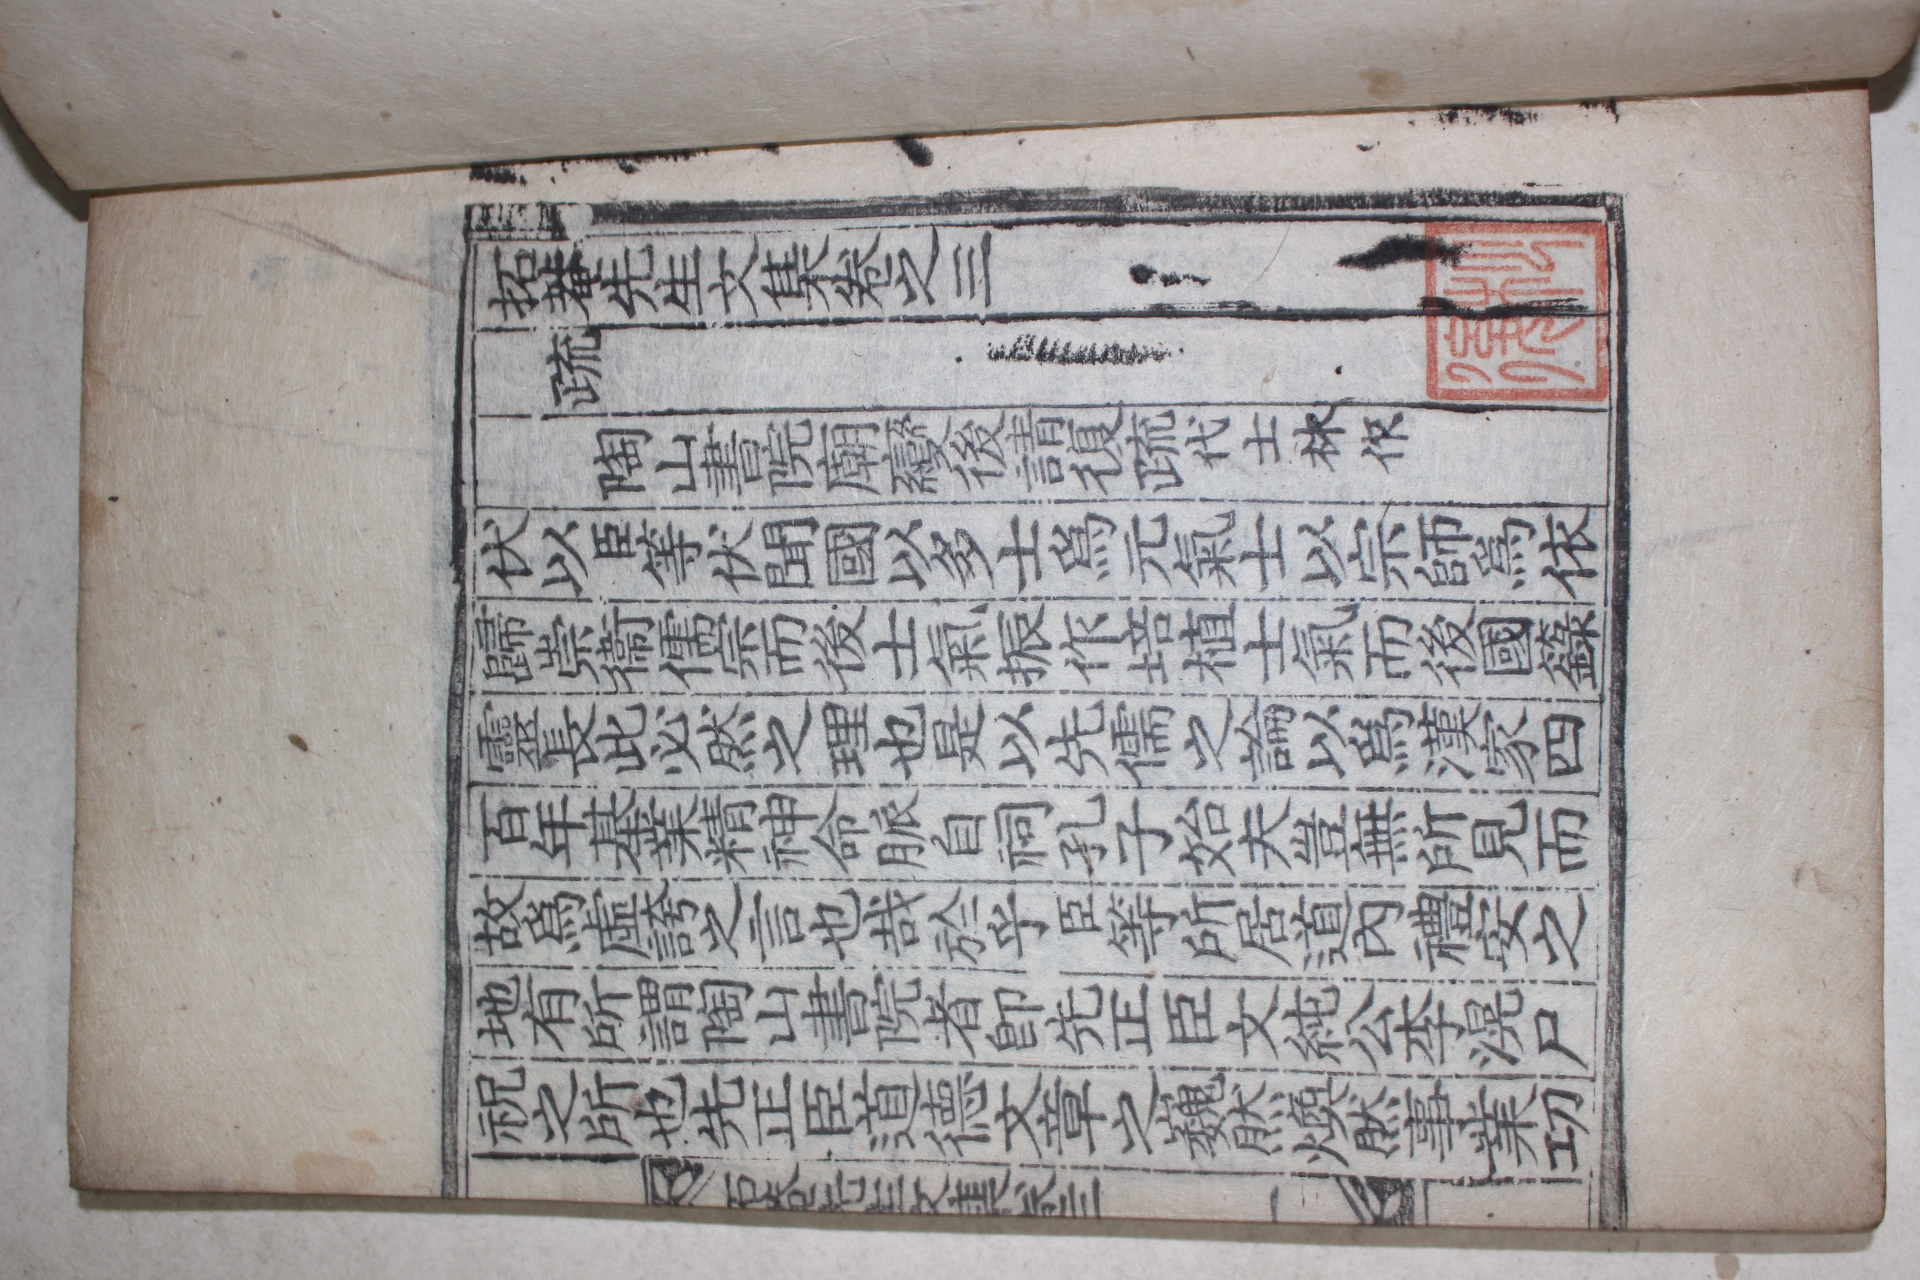 拓菴先生文集卷之三
疏
陶山書院廟變後請復疏代士林作
伏以臣等伏聞國以多士爲元氣士以宗師爲依
歸崇衛儒宗而後士氣振作培植士氣而後國籙
靈長此必然之理也是以先儒之論以爲漢家四
百年基業精神命脈自祠孔子始夫豈無所見而
故爲虛誇之言也哉於乎臣等所居道內禮安之
地有所謂陶山書院者卽先正臣文純公李滉尸
祝之所也先正臣道德文章之巍然煥然事業功
拓菴先生文集卷三
一